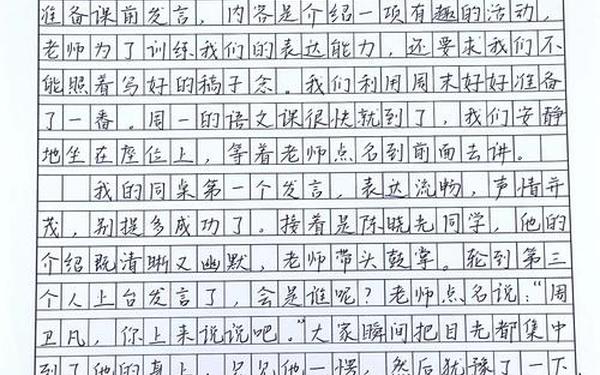 准备课前发言，内容是介绍一项有趣的活动，
老师为了训练我们的表达能力，还要求我们不
能照着写好的稿子念。我们利用周末好好准备
了一番。周一的语文课很快就到了，我们安静
地坐在座位上，等着老师点名到前面去讲。
我的同桌第一个发言，表达流畅，声情并
茂，别提多成功了。接着是陈晓光同学，他的
介绍既清晰又幽默，老师带头鼓掌。轮到第三
个人上台发言了，会是谁呢？老师点名说：“周
卫凡，你上来说说吧。”大家瞬间把目光都集中
到了他的身上，只见他一愣，然后犹豫了一下